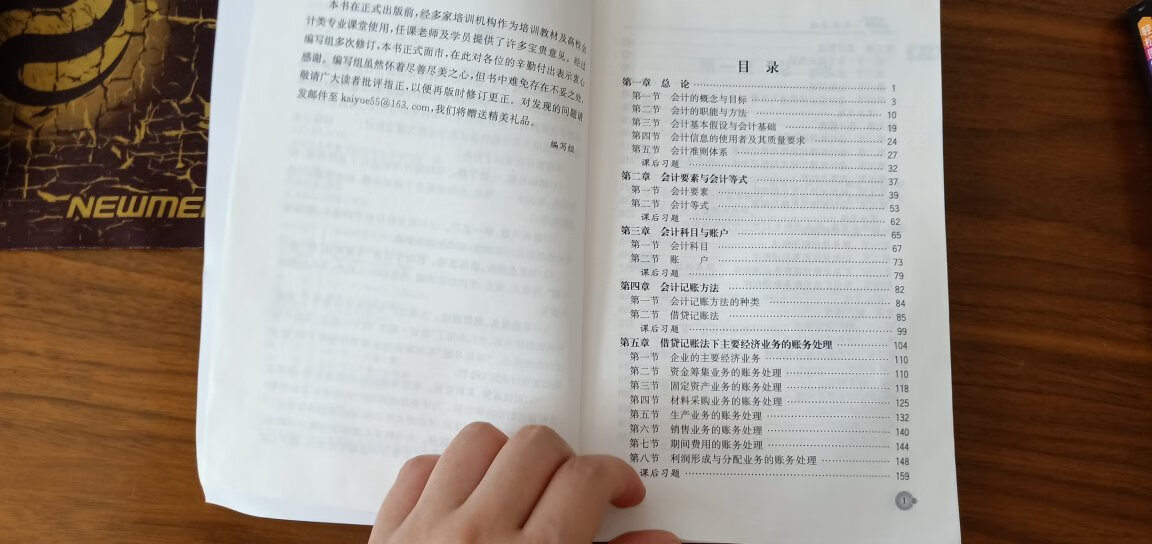 本书在正式出版前,经多家培训机构作为培训教材及高校会
计类专业课堂使用,任课老师及学员提供了许多宝贵意见。经过
编写组多次修订,本书正式面市,在此对各位的辛勤付出表示衷心
感谢。编写组虽然怀着尽善尽美之心,但书中难免存在不妥之处,
敬请广大读者批评指正,以便再版时修订更正。对发现的问题请
发邮件至 kaiyue55@163.com,我们将赠送精美礼品。
编写组
NEWME
目 录
第一章 总 论 1
第一节 会计的概念与目标 3
第二节 会计的职能与方法 10
第三节 会计基本假设与会计基础 19
第四节 会计信息的使用者及其质量要求 24
第五节 会计准则体系 27
课后习题 32
第二章 会计要素与会计等式 37
第一节 会计要素 39
第二节 会计等式 53
课后习题 62
第三章 会计科目与账户 65
第一节 会计科目 67
第二节 账 户 73
课后习题 79
第四章 会计记账方法 82
第一节 会计记账方法的种类 84
第二节 借贷记账法 85
课后习题 99
第五章 借贷记账法下主要经济业务的账务处理 104
第一节 企业的主要经济业务 110
第二节 资金筹集业务的账务处理 110
第三节 固定资产业务的账务处理 118
第四节 材料采购业务的账务处理 125
第五节 生产业务的账务处理 132
第六节 销售业务的账务处理 140
第七节 期间费用的账务处理 144
第八节 利润形成与分配业务的账务处理 148
课后习题 159
1